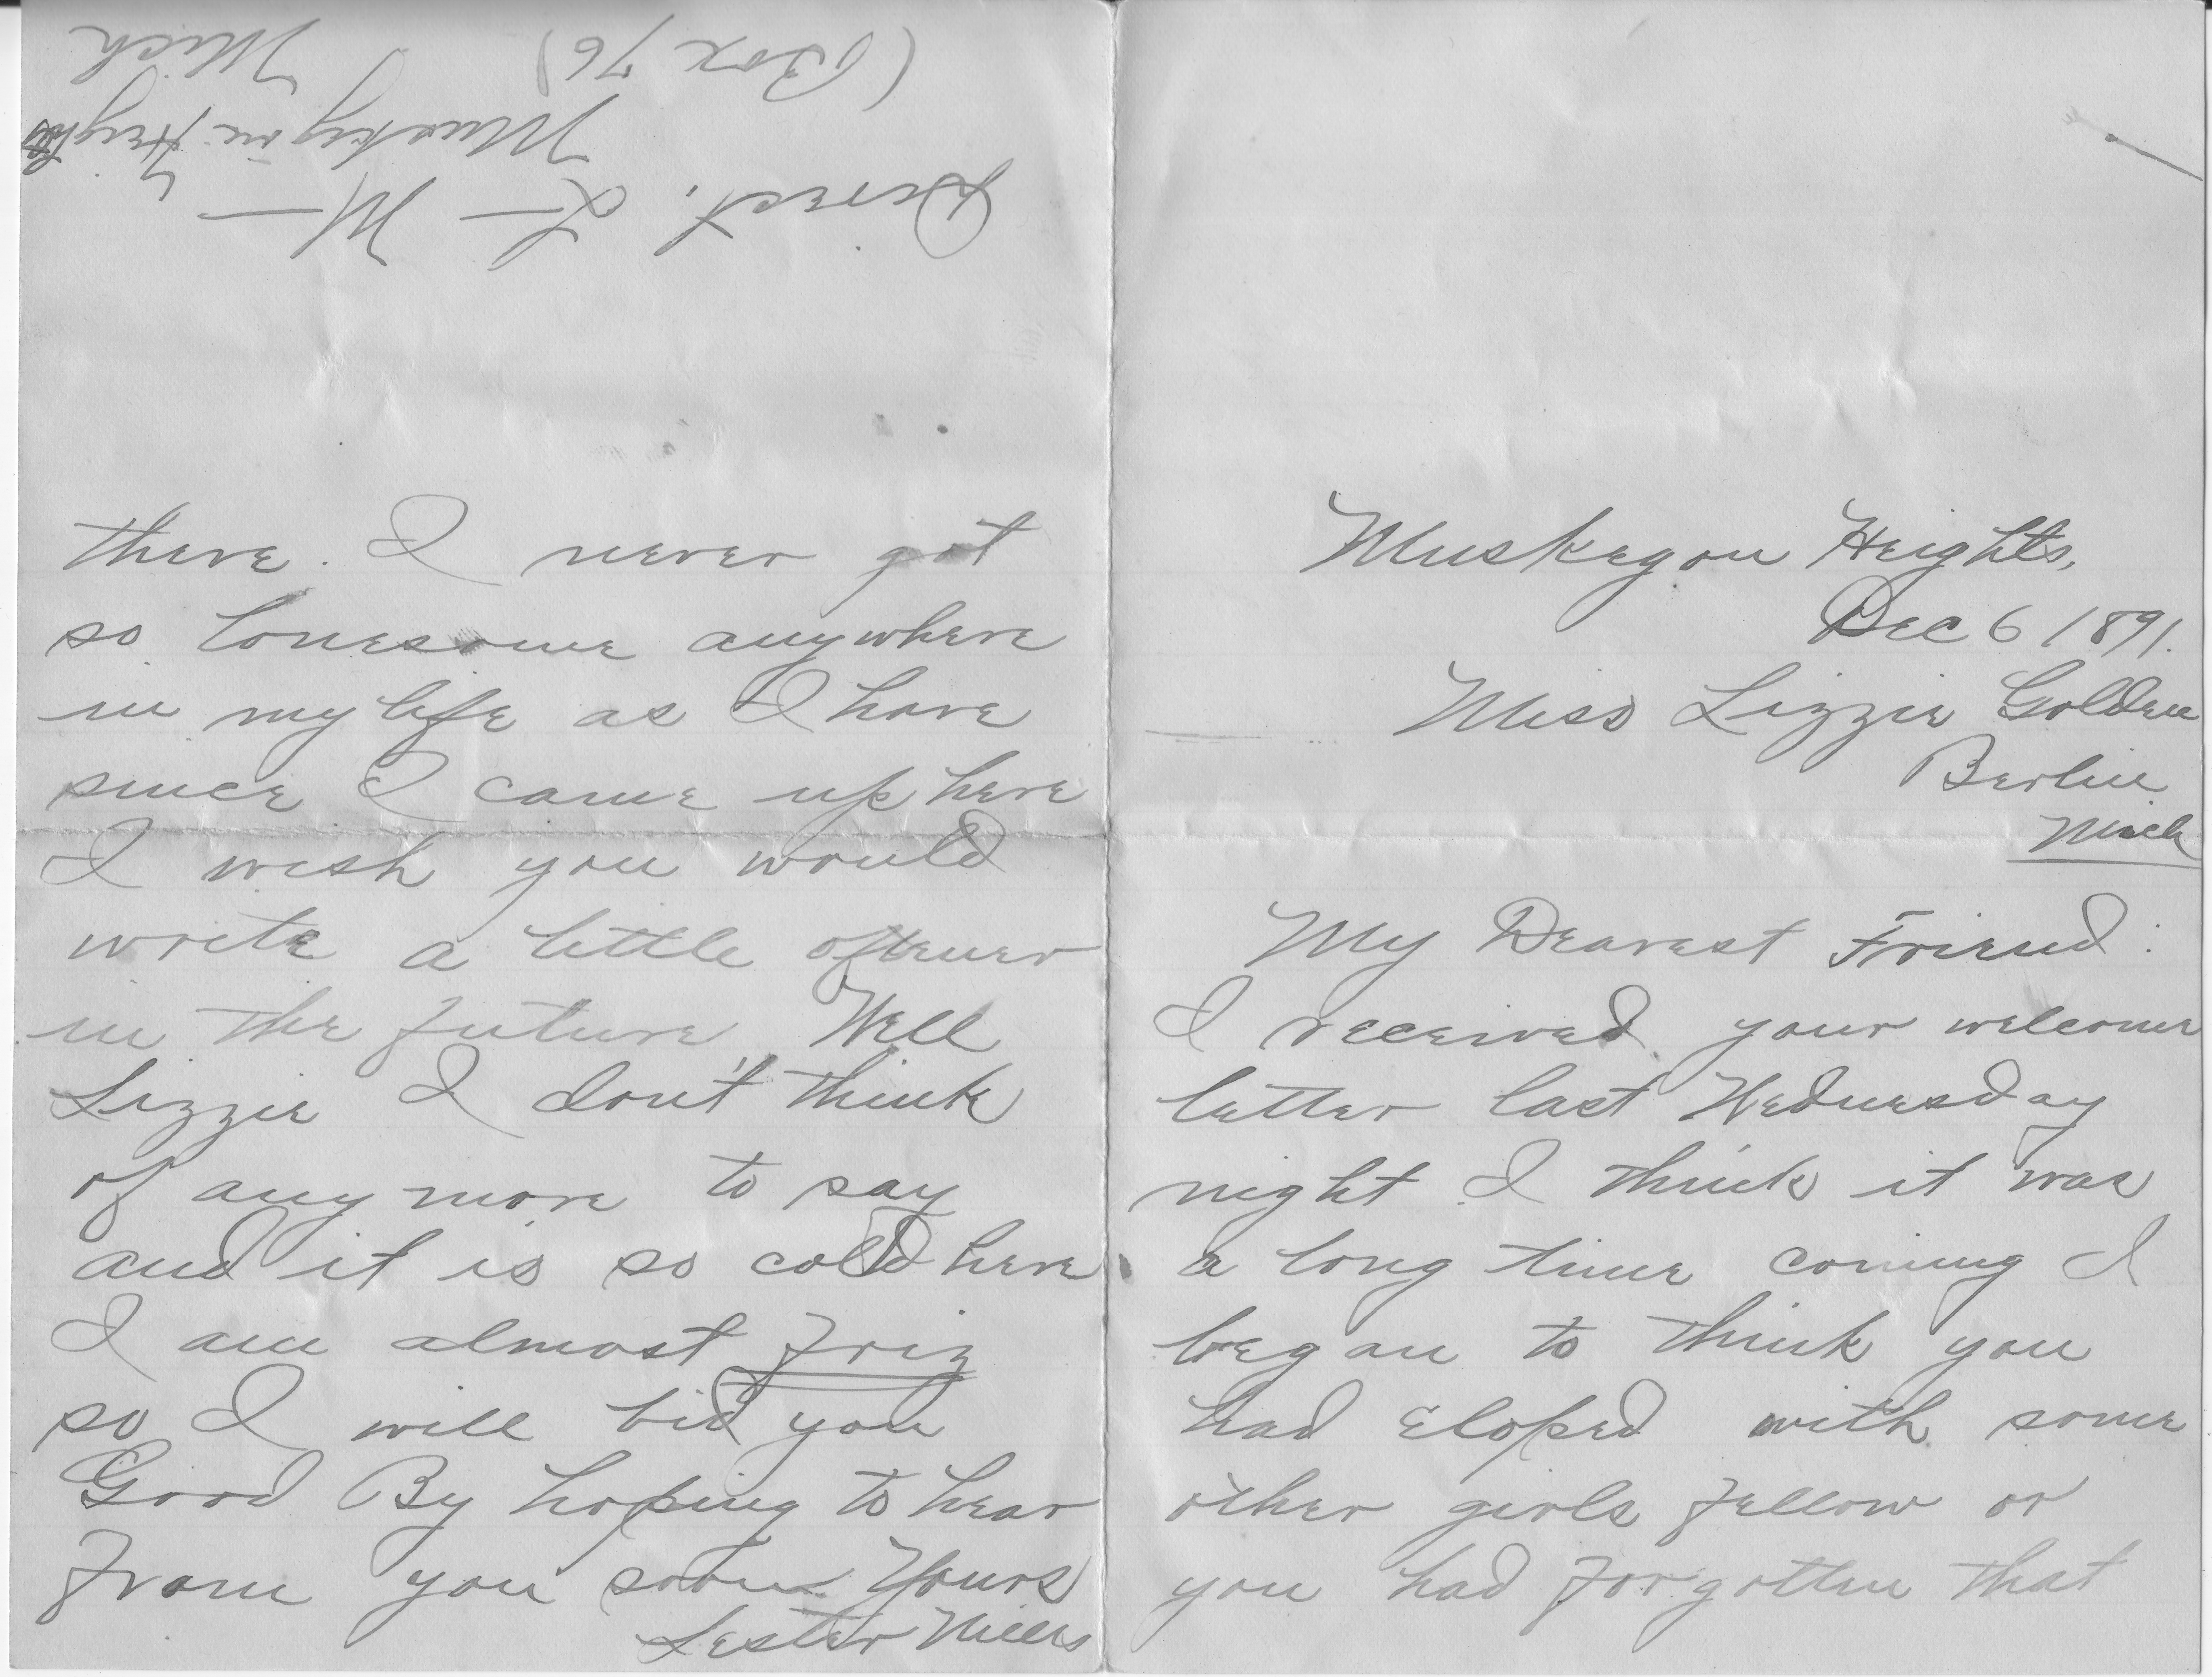 Muskegon Heights,
Dec 6 1891.
Miss Lizzie Golden
Berlin
Mich
My Dearest Friend:
I received your welcome
letter last Wednesday
night I think it was
a long time coming I
began to think you
had eloped with some
other girls fellow or
you had forgotten that
there. I never got
so lonesome anywhere
in my life as I have
since I came up here
I wish you would
write a little oftener
in the future Well
Lizzie I don't think
of any more to say
and it is so cold here
I am almost friz
so I will bid you
Good By hoping to hear
from you soon Yours
Lester Mills
Direct. L— M—
Muskegon Heights
(Box 76) Mich